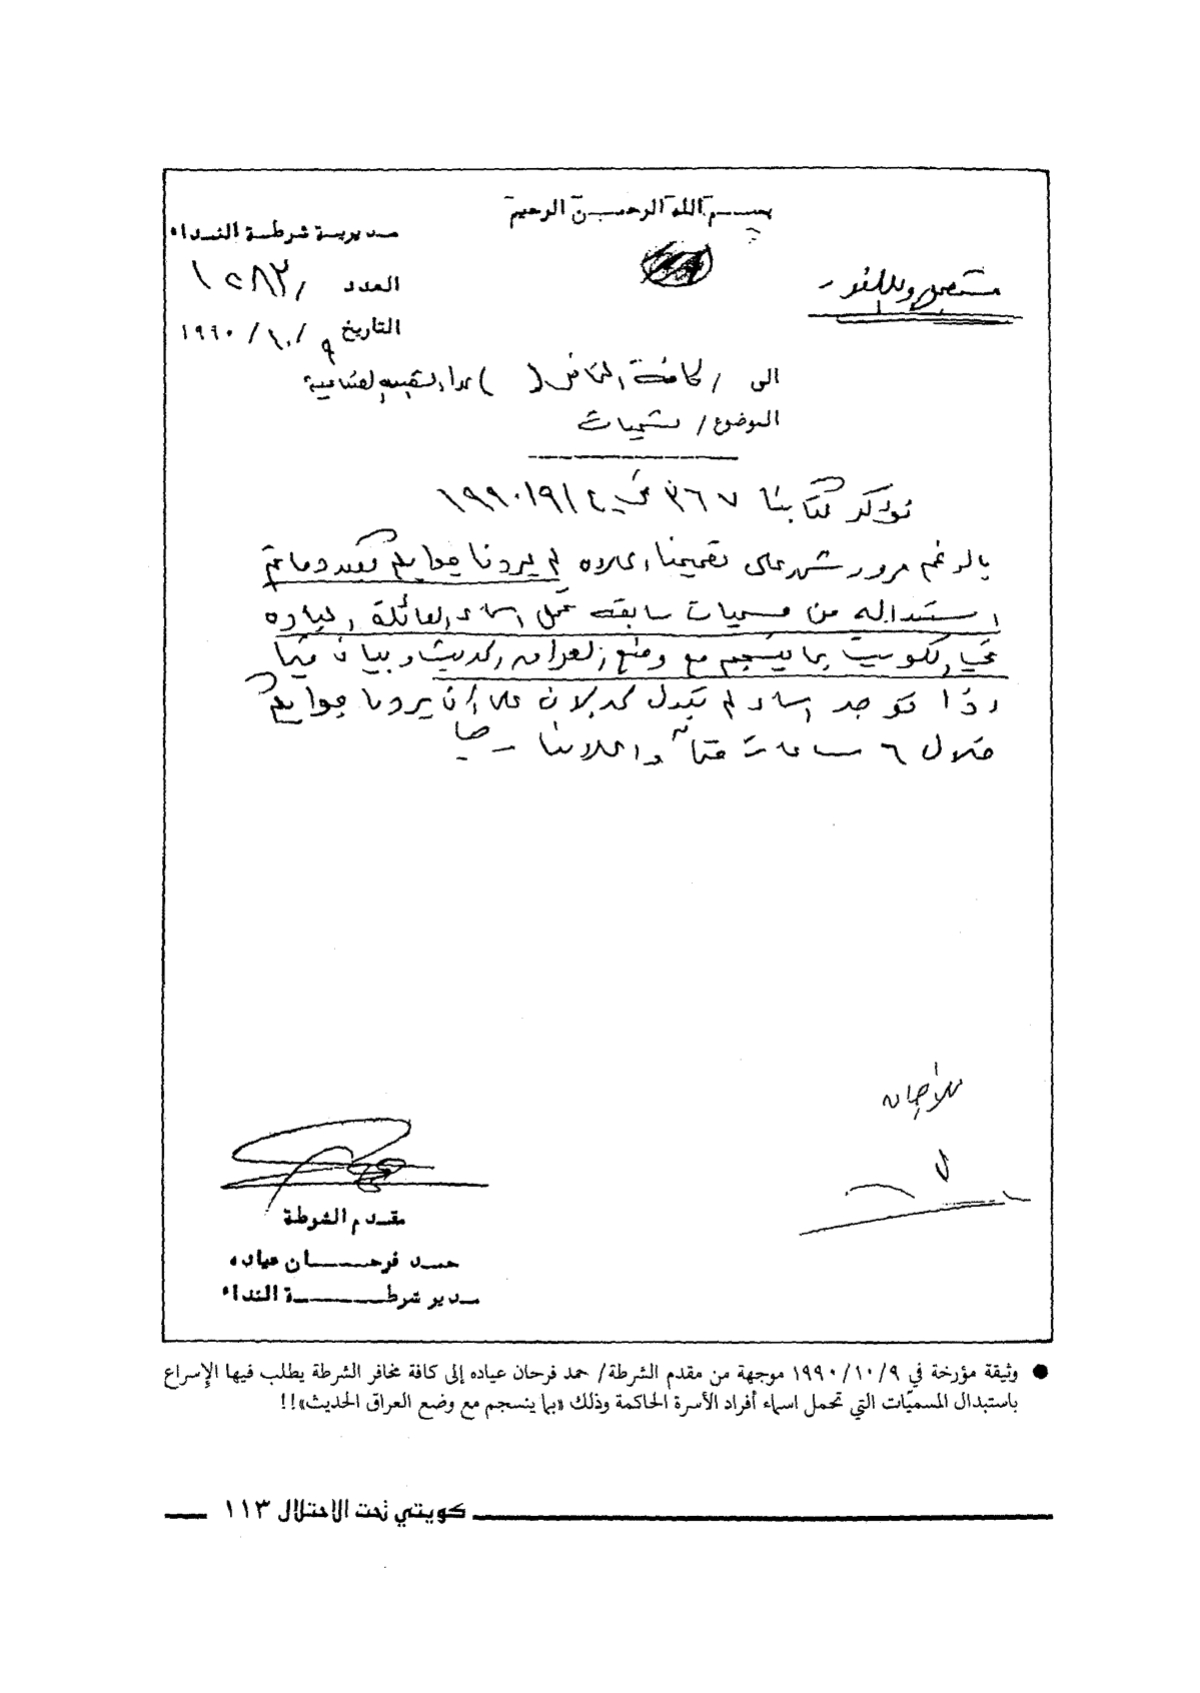 بسم الله الرحمن الرحيم
مديرية شرطة النداء
العدد / ١٥٨٣
التاريخ ٩ / ١٠ / ١٩٩٠
مستعجل وللفور
الى / كافة المخافر ( )
الموضوع / تسميات
نؤكد كتابنا ٣٦٧ في ٤ / ٩ / ١٩٩٠
بالرغم مرور شهر على تعميمنا اعلاه لم يردنا جوابكم بصدد ما تم
استبداله من مسميات سابقه تحمل اسماء العائلة البادء
في الكويت بما ينسجم مع وضع العراق الحديث وبيان فيما
اذا توجد اسماء لم تبدل لحد الان على أن يردنا جوابكم
خلال ٦ ساعات واعلامنا
مقدم الشرطة
حمد فرحان عياده
مدير شرطة النداء
● وثيقة مؤرخة في ٩/ ١٠/ ١٩٩٠ موجهة من مقدم الشرطة/ حمد فرحان عياده إلى كافة مخافر الشرطة يطلب فيها الإسراع
باستبدال المسميّات التي تحمل اسماء أفراد الأسرة الحاكمة وذلك «بما ينسجم مع وضع العراق الحديث»!!
كويتي تحت الاحتلال ١١٣